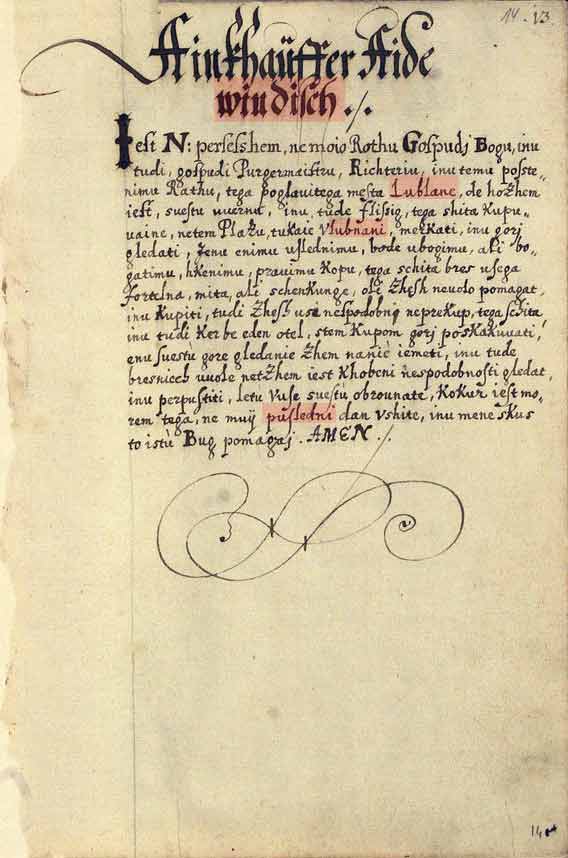 14. 13
Ainkhaüffer Aide
windisch ./.
Iest N: persesshem, ne moio Rothu Gospudj Bogu, inu
tudi, gospudi Purgermaistru, Richteriu, inu temu poste„
nimu Rathu, tega poglauitega mesta Lublane, de hozhem
iest, suestu uuernu, inu tude flissig, tega shita kupu„
uaine, netem Plazu, tukaie Vlubnani, merkati, inu gorj
gledati, ienu enimu uslednimu, bode ubogimu, ali bo„
gatimu, hkenimu, prauimu Kopu, tega schita bres usega
fortelna, mita, ali schenkunge, oli zhesh neuolo pomagat,
inu kupiti, tudi zhesh use nespodobnie preкup, tega schita
inu tudi Ker be eden otel, stem Kupom gorj poskakuuati,
enu suestu gore gledanie zhem nanie iemeti, inu tude
bresnicch uuole netzhem iest Khobeni nespodobnosti gledat,
inu perpustiti, letu Vuse suestu obrounate, Kokur iest mo„
rem tega, ne muij pusledni dan Vshite, inu mene skus
to istu Bug pomagaj. AMEN ./.
14